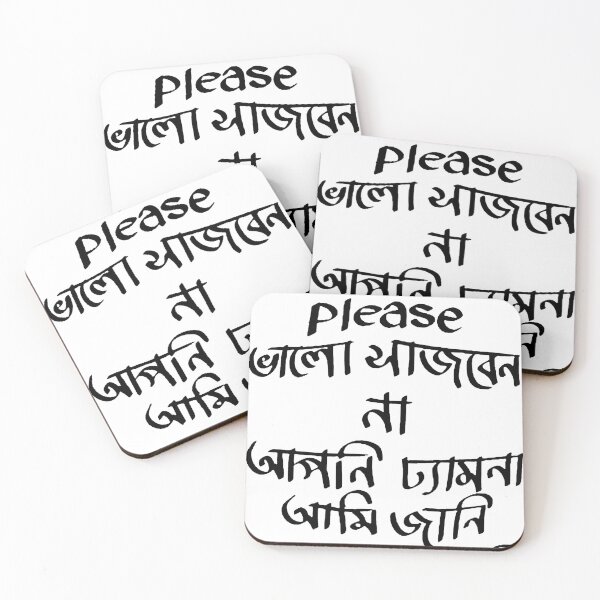 Please
ভালো সাজবেন
না
Please
ভালো সাজবেন
না
আপনি ঢ্যামনা
Please
ভালো সাজবেন
না
আপনি
আমি
Please
ভালো সাজবেন
না
আপনি ঢ্যামনা
আমি জানি